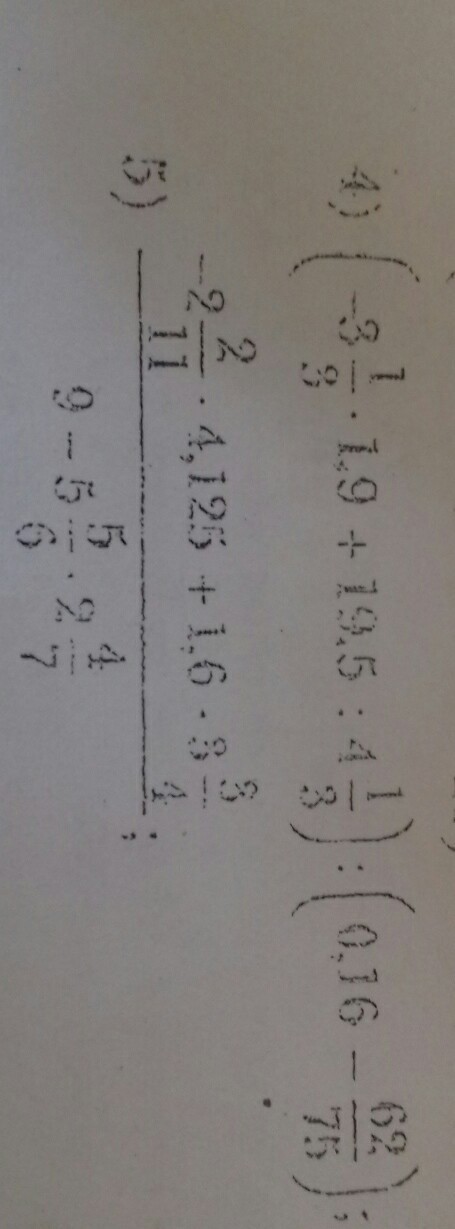 4) ( -3 1/3 · 1,9 + 19,5 : 4 1/3 ) : ( 0,16 - 62/75 );
5) (-2 2/11 · 4,125 + 1,6 · 3 3/4) / (9 - 5 5/6 · 2 4/7) ;